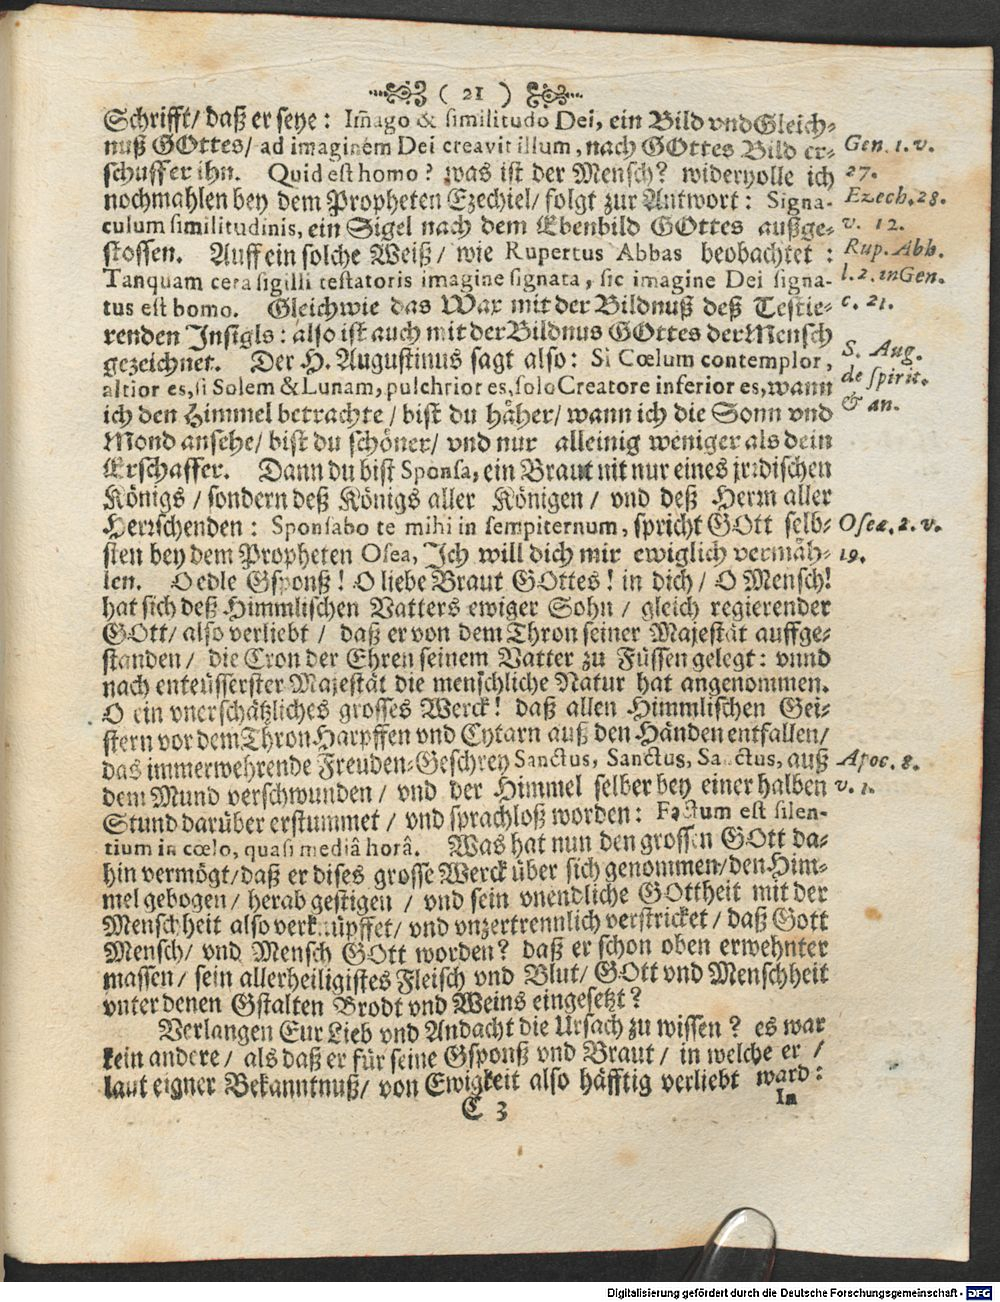 ( 21 )
Schrifft/ daß er seye: Im̃ago & similitudo Dei, ein Bild vnd Gleich-
nuß GOttes/ ad imaginem Dei creavit illum, nach GOttes Bild er-
schuff er ihn. Quid est homo? was ist der Mensch? widerholle ich
nochmahlen bey dem Propheten Ezechiel/ folgt zur Antwort: Signa-
culum similitudinis, ein Sigel nach dem Ebenbild GOttes außge-
stossen. Auff ein solche Weiß/ wie Rupertus Abbas beobachtet:
Tanquam cera sigilli testatoris imagine signata, sic imagine Dei signa-
tus est homo. Gleichwie das Wax mit der Bildnuß deß Testie-
renden Insigls: also ist auch mit der Bildnus GOttes der Mensch
gezeichnet. Der H. Augustinus sagt also: Si Cœlum contemplor,
altior es, si Solem & Lunam, pulchrior es, solo Creatore inferior es, wann
ich den Himmel betrachte/ bist du häher/ wann ich die Sonn vnd
Mond ansehe/ bist du schöner/ vnd nur alleinig weniger als dein
Erschaffer. Dann du bist Sponsa, ein Braut nit nur eines jrrdischen
Königs/ sondern deß Königs aller Königen/ vnd deß Herrn aller
Herrschenden: Sponsabo te mihi in sempiternum, spricht GOtt selb-
sten bey dem Propheten Osea, Ich will dich mir ewiglich vermäh-
len. O edle Gsponß! O liebe Braut GOttes! in dich/ O Mensch!
hat sich deß Himmlischen Vatters ewiger Sohn/ gleich regierender
GOtt/ also verliebt/ daß er von dem Thron seiner Majestät auffge-
standen/ die Cron der Ehren seinem Vatter zu Füssen gelegt: vnnd
nach enteüsserster Majestät die menschliche Natur hat angenommen.
O ein vnerschätzliches grosses Werck! daß allen Himmlischen Gei-
stern vor dem Thron Harpffen vnd Cytarn auß den Händen entfallen/
das immerwehrende Freuden-Geschrey Sanctus, Sanctus, Sanctus, auß
dem Mund verschwunden/ vnd der Himmel selber bey einer halben
Stund darüber erstummet/ vnd sprachloß worden: Factum est silen-
tium in cœlo, quasi mediâ horâ. Was hat nun den grossen GOtt da-
hin vermögt/ daß er dises grosse Werck über sich genommen/ den Him-
mel gebogen/ herab gestigen/ vnd sein vnendliche GOttheit mit der
Menschheit also verknüpffet/ vnd vnzertrennlich verstricket/ daß Gott
Mensch/ vnd Mensch GOtt worden? daß er schon oben erwehnter
massen/ sein allerheiligistes Fleisch vnd Blut/ GOtt vnd Menschheit
vnter denen Gstalten Brodt vnd Weins eingesetzt?
Verlangen Eur Lieb vnd Andacht die Ursach zu wissen? es war
kein andere/ als daß er für seine Gsponß vnd Braut/ in welche er/
laut eigner Bekanntnuß/ von Ewigkeit also häfftig verliebt ward:
C 3
In
Gen. 1. v.
27.
Ezech. 28.
v. 12.
Rup. Abb.
l. 2. in Gen.
c. 21.
S. Aug.
de spirit.
& an.
Osea. 2. v.
19.
Apoc. 8.
v. 1.
Digitalisierung gefördert durch die Deutsche Forschungsgemeinschaft - DFG